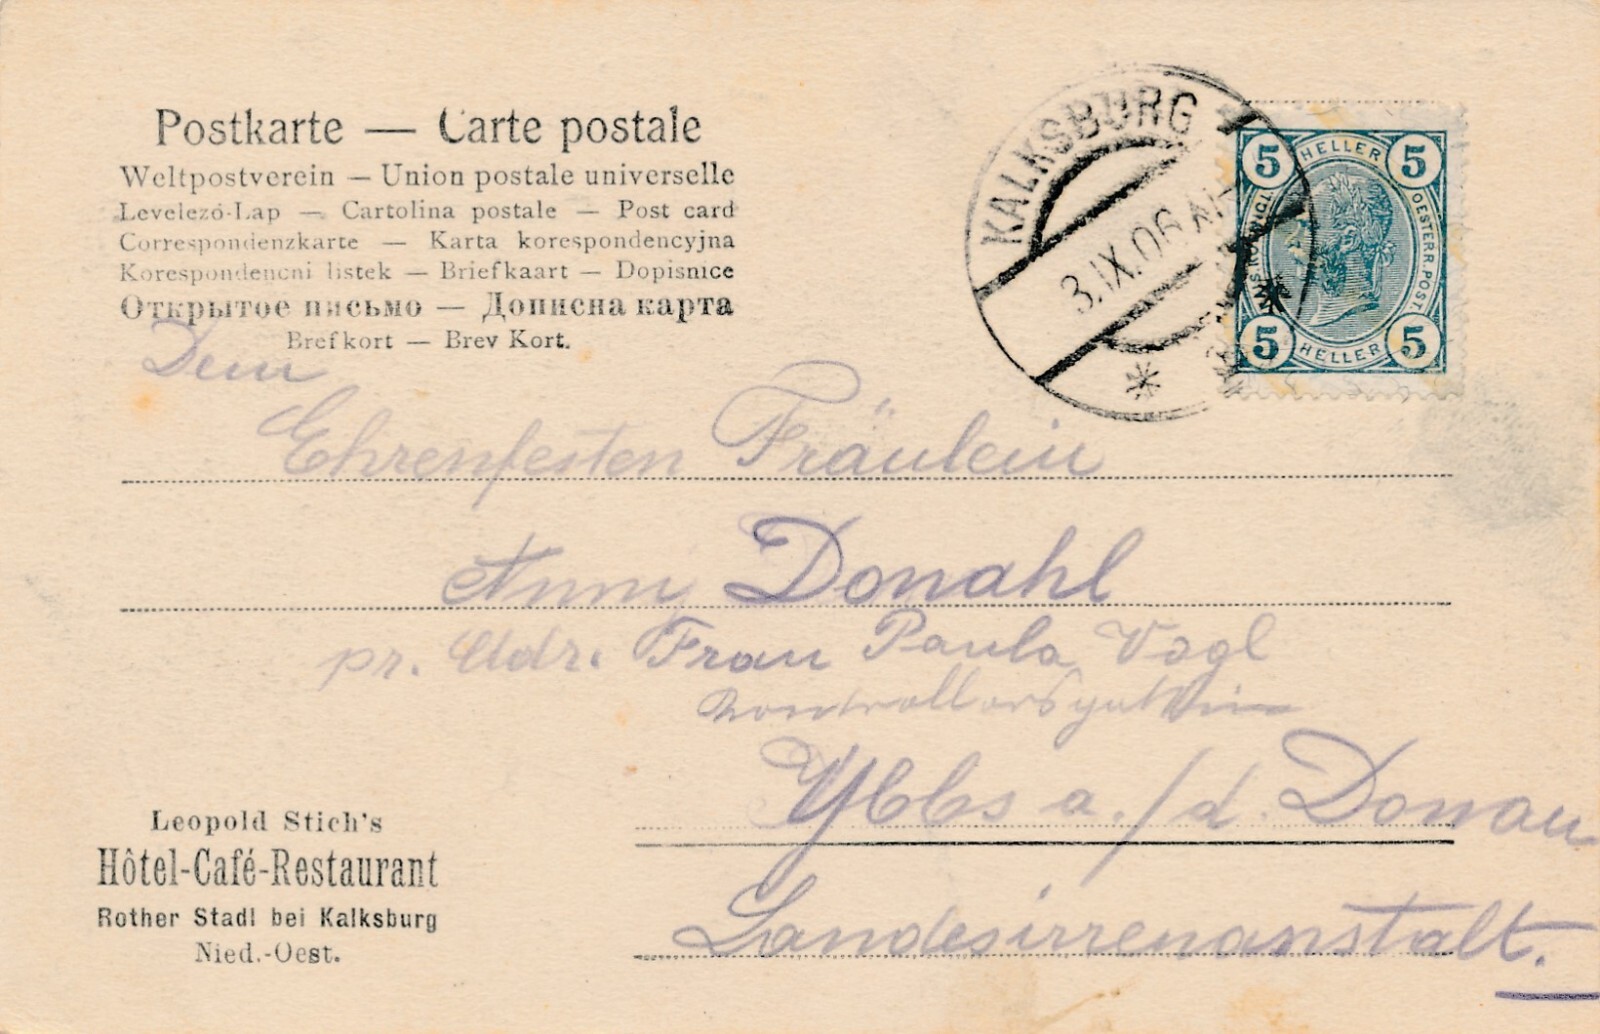 Postkarte — Carte postale
Weltpostverein — Union postale universelle
Levelező-Lap — Cartolina postale — Post card
Correspondenzkarte — Karta korespondencyjna
Korespondencni listek — Briefkaart — Dopisnice
Открытое письмо — Дописна карта
Brefkort — Brev Kort.
KALKSBURG
3.IX.06
5 HELLER 5
OESTERR.POST.
5 HELLER 5
Dem
Ehrenfesten Fräulein
Anny Donahl
pr. Adr. Frau Paula Vogl
Kontrollorsgattin
Ybbs a./d. Donau
Landesirrenanstalt.
Leopold Stich's
Hôtel-Café-Restaurant
Rother Stadl bei Kalksburg
Nied.-Oest.